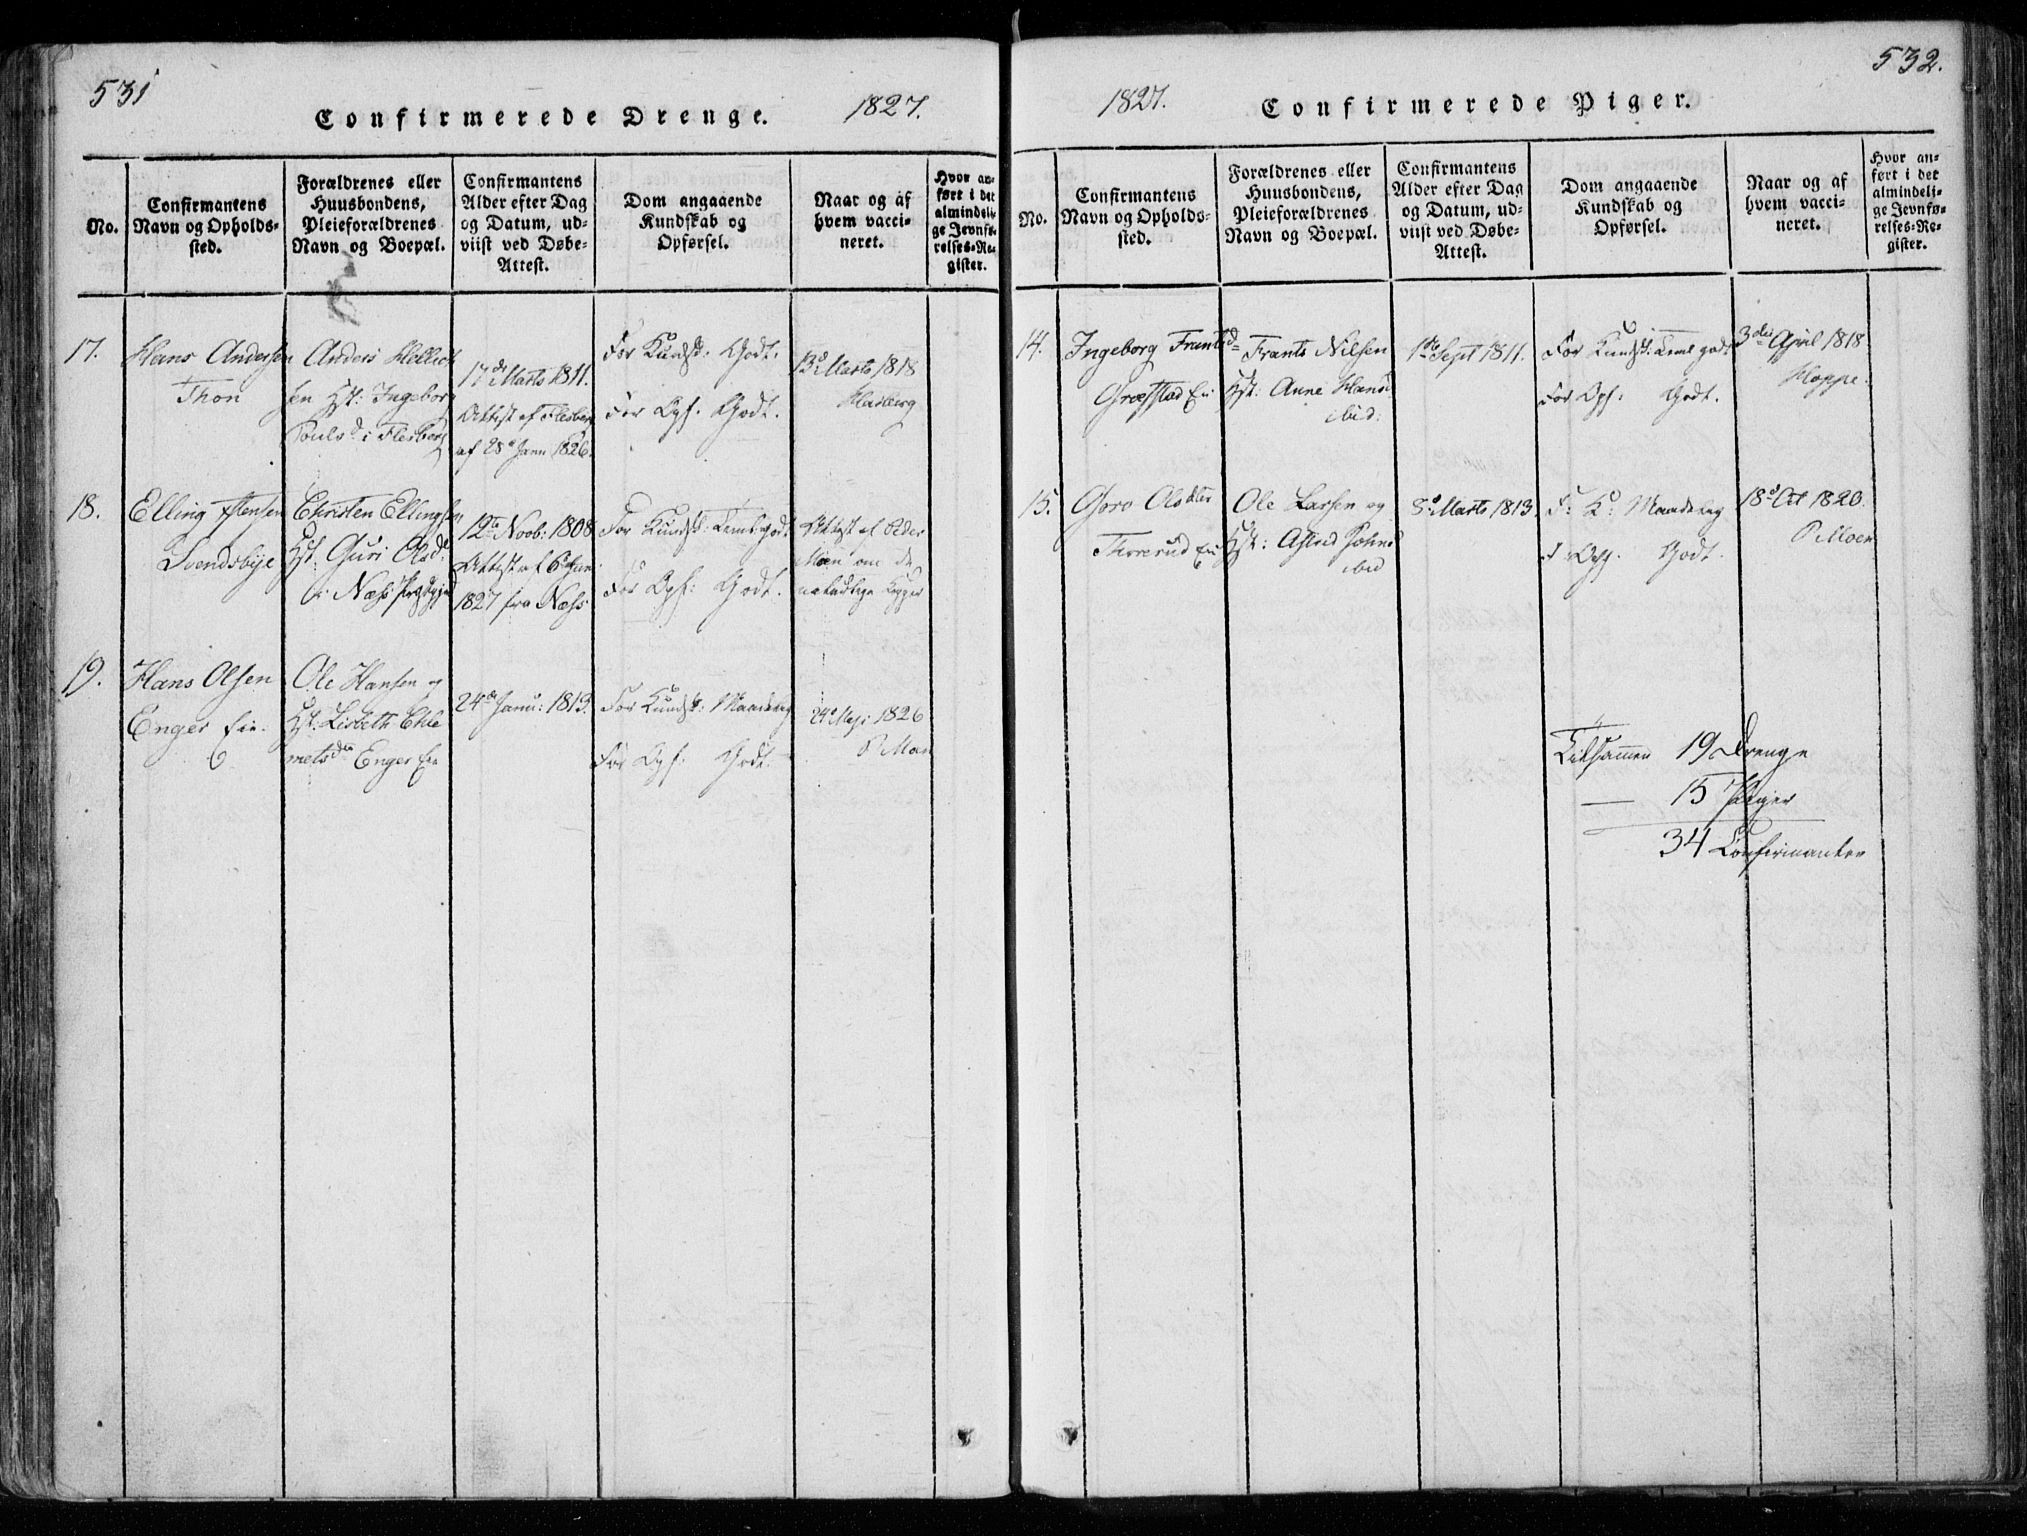 531
Confirmerede Drenge.
1827.
No.
Confirmantens
Navn og Opholds-
sted.
Forældrenes eller
Huusbondens,
Pleieforældrenes
Navn og Boepæl.
Confirmantens
Alder efter Dag
og Datum, ud-
viist ved Døbe-
Attest.
Dom angaaende
Kundskab og
Opførsel.
Naar og af
hvem vacci-
neret.
Hvor an-
ført i det
almindeli-
ge Jevnfø-
relses-Re-
gister.
17.
Hans Andersen
Thon
Anders
sen Hst: Ingeborg
Pouls d. i Flesberg
17 d Marts 1811.
Attest af Flesberg
af 28 d Janu 1826.
For Kundsk: Godt.
For Opf: Godt.
13 d Marts 1818
18.
Elling
Svendsbye
Christen Ellingsen
Hst: Guri Olsd.
i Næss
12te Novb: 1808
Attest af 6 d Janu
1827 fra Næss
For Kundsk: Teml. godt
For Opf: Godt.
Attest af Peder
Moen om de
naturlige Kopper
19.
Hans Olsen
Enger Eie.
Ole Hansen og
Hst: Lisbeth Chle
mets dtr Enger Eie
24de Janu: 1813.
For Kundsk: Maadelig
For Opf: Godt.
24 d Maji 1826
P. Moen
532.
1827.
Confirmerede Piger.
No.
Confirmantens
Navn og Opholds-
sted.
Forældrenes eller
Huusbondens,
Pleieforældrenes
Navn og Boepæl.
Confirmantens
Alder efter Dag
og Datum, ud-
viist ved Døbe-
Attest.
Dom angaaende
Kundskab og
Opførsel.
Naar og af
hvem vacci-
neret.
Hvor an-
ført i det
almindeli-
ge Jevnfø-
relses-Re-
gister.
14.
Ingeborg Frantsd
Eie
Frants Nilsen
Hst: Anne Hansd
ibid:
1ste Sept 1811.
For Kundsk: Teml godt
For Opf: Godt.
3die April 1818
Hoppe.
15.
Goro Olsdtr
Thorerud Eie
Ole Larsen og
Hst: Astrid Johns
ibid
8 d Marts 1813.
F: K: Maadelig
F: Opf. Godt.
18 d Oct 1820.
P. Moen
Tilsamen 19 Drenge
— 15 Piger
34 Confirmanter